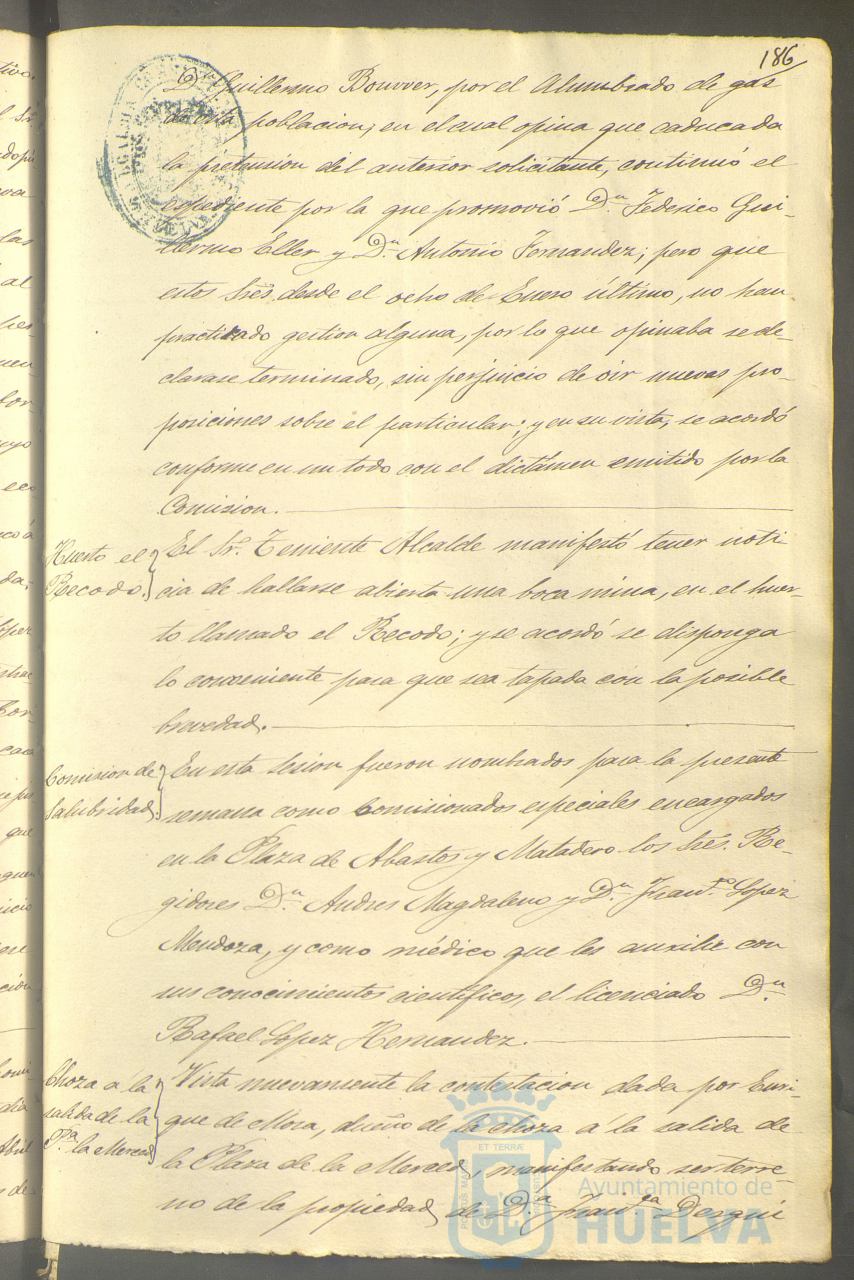 186
D. Guillermo Bouvver, por el Alumbrado de gas
de esta poblacion; en el cual opina que caducada
la pretension del anterior solicitante, continuó el
expediente por la que promovió Dn. Federico Gui-
llermo Eller y Dn. Antonio Fernandez; pero que
estos Sres. desde el ocho de Enero último, no han
practicado gestion alguna, por lo que opinaba se de-
clarase terminado, sin perjuicio de oir nuevas pro-
posiciones sobre el particular; y en su vista, se acordó
conforme en un todo con el dictámen emitido por la
Comision.
Huerto el
Recodo.
El Sr. Teniente Alcalde manifestó tener noti
cia de hallarse abierta una boca mina, en el huer-
to llamado el Recodo; y se acordó se disponga
lo conveniente para que sea tapada con la posible
brevedad.
Comision de
Salubridad.
En esta sesion fueron nombrados para la presente
semana como Comisionados especiales encargados
en la Plaza de Abastos y Matadero los Sres. Re-
gidores Dn. Andres Magdaleno y Dn. Franco. Lopez
Mendoza, y como médico que les auxilie con
sus conocimientos cientificos, el licenciado Dn.
Rafael Lopez Hernandez.
Choza á la
salida de la
Pa. la Merced
Vista nuevamente la contestacion dada por Enri-
que de Mora, dueño de la choza á la salida de
la Plaza de la Merced, manifestando ser terre-
no de la propiedad de Da. Franca. Dergui
ET TERRÆ
Ayuntamiento de
HUELVA